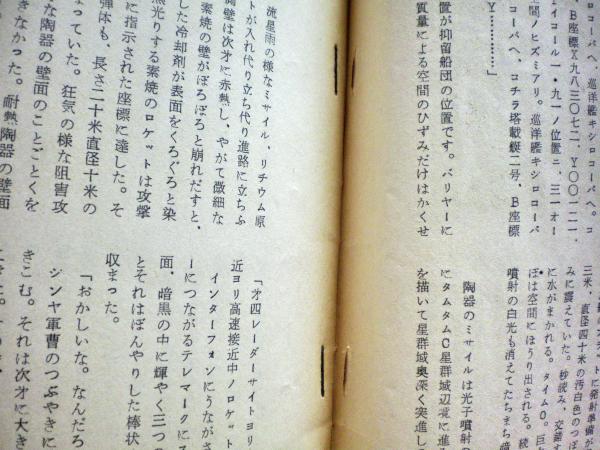 コーパヘ、巡洋艦キシロコーパヘ。コ
B座標X九八三〇七二、Y〇〇一二一
イコール一・九一ノ位置ニ、三一オー
間ノヒズミアリ。巡洋艦キシロコーパ
コーパヘ、コチラ塔載艇二号、B座標
Y…………」
置が抑留船団の位置です。バリヤーに
質量による空間のひずみだけはかくせ
トに発射準備が
三米、直径四十米の汚白色のつぼ
みに震えていた。秒読み、交錯す
に水がまかれる。タイム〇。巨
ぼは空間にほうり出される。続
噴射の白光も消えてたちまち暗
陶器のミサイルは光子噴射の
にタムタムC星群域辺境に進
を描いて星群域奥深く突進し
流星雨の様なミサイル、リチウム原
トが入れ代り立ち代り進路に立ちふ
陶壁は次才に赤熱し、やがて微細な
素焼の壁がぼろぼろと崩れだすと、
した冷却剤が表面をくろぐろと染
黒光りする素焼のロケットは攻撃
に指示された座標に達した。そ
弾体も、長さ二十米直径十米の
まっていた。狂気の様な阻害攻
な陶器の壁面のことごとくを
きなかった。耐熱陶器の壁面
「才四レーダーサイトヨリ
近ヨリ高速接近中ノロケット
インターフォンにうながさ
ーにつながるテレマークにス
面、暗黒の中に輝やく三つの
とそれはぼんやりした棒状
収まった。
「おかしいな。なんだろ
シンヤ軍曹のつぶやきに
きこむ。それは次才に大き